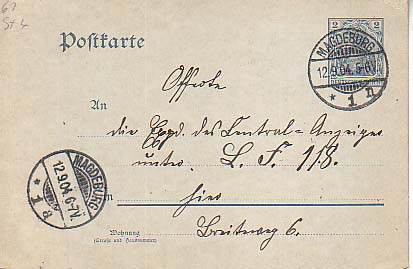 67
St 4
Postkarte
2
MAGDEBURG
12.9.04. 5-6V.
* 1 n
Offerte
An
die Exped. des Central-Anzeiger
unter L. F. 118.
MAGDEBURG
12.9.04. 6-7V.
* 1 a
in
hier
Wohnung
(Straße und Hausnummer)
Breiteweg 6.